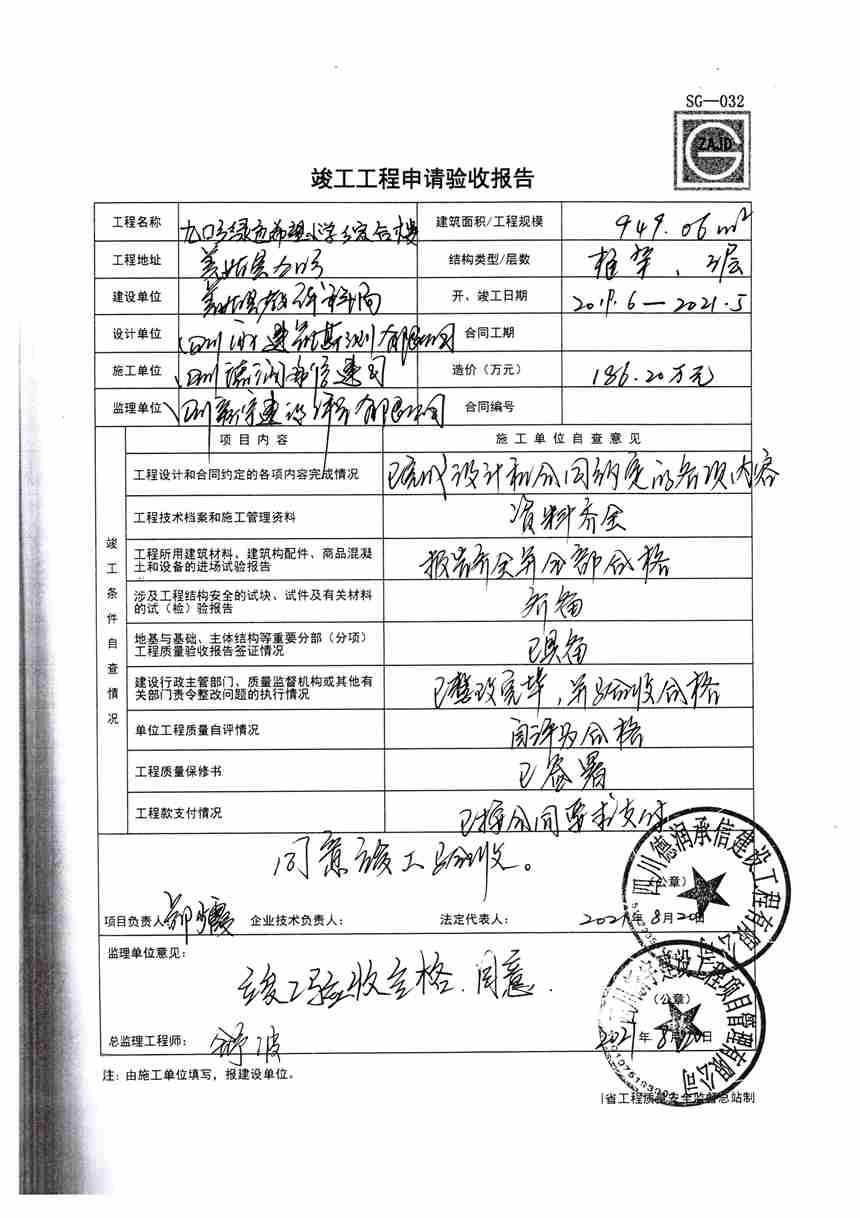 SG—032
ZAJD
竣工工程申请验收报告
工程名称 九口乡绿色希望小学综合楼 建筑面积/工程规模 949.06m²
工程地址 美姑县九口乡 结构类型/层数 框架、3层
建设单位 美姑县教体科局 开、竣工日期 2019.6—2021.5
设计单位 合同工期
施工单位 造价（万元） 186.20万元
监理单位 合同编号
项目内容 施工单位自查意见
竣工条件自查情况
工程设计和合同约定的各项内容完成情况 已完成设计和合同约定的各项内容
工程技术档案和施工管理资料 资料齐全
工程所用建筑材料、建筑构配件、商品混凝
土和设备的进场试验报告 报告齐全并全部合格
涉及工程结构安全的试块、试件及有关材料
的试（检）验报告 齐备
地基与基础、主体结构等重要分部（分项）
工程质量验收报告签证情况 已具备
建设行政主管部门、质量监督机构或其他有
关部门责令整改问题的执行情况 已整改完毕，并验收合格
单位工程质量自评情况 自评为合格
工程质量保修书 已签署
工程款支付情况 已按合同要求支付
同意竣工验收。
四川德润承信建设工程有限公司
（公章）
项目负责人 企业技术负责人： 法定代表人： 2021年8月20日
监理单位意见：
竣工验收合格.同意.
建设工程项目管理有限公司
（公章）
总监理工程师： 舒波 2021年8月20日
注：由施工单位填写，报建设单位。
省工程质量安全监督总站制